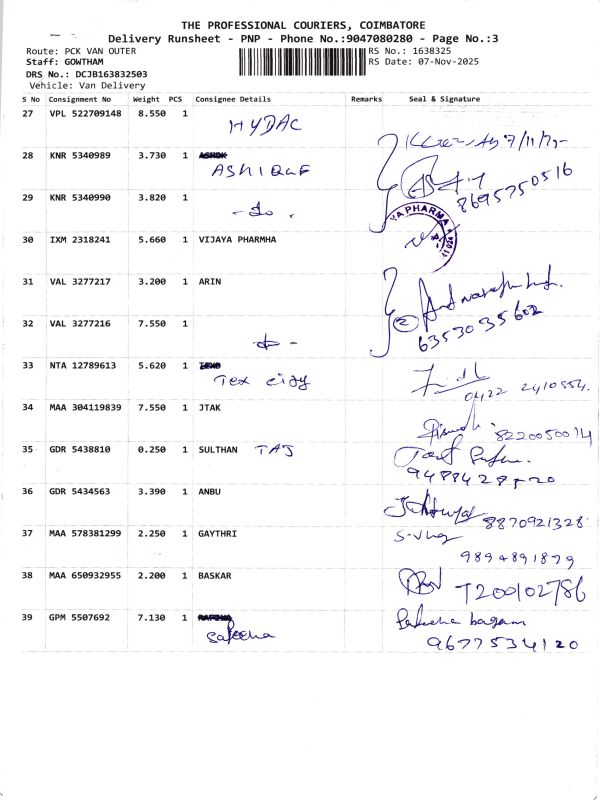 THE PROFESSIONAL COURIERS, COIMBATORE
Delivery Runsheet - PNP - Phone No.:9047080280 - Page No.:3
Route: PCK VAN OUTER RS No.: 1638325
Staff: GOWTHAM RS Date: 07-Nov-2025
DRS No.: DCJB163832503
Vehicle: Van Delivery
S No Consignment No Weight PCS Consignee Details Remarks Seal & Signature
27 VPL 522709148 8.550 1
HYDAC
28 KNR 5340989 3.730 1
ASHIQUE
8695750516
29 KNR 5340990 3.820 1
- Do .
PHARMA
30 IXM 2318241 5.660 1 VIJAYA PHARMHA
31 VAL 3277217 3.200 1 ARIN
6353035602
32 VAL 3277216 7.550 1
- do -
33 NTA 12789613 5.620 1
Tex city
0422 2410554.
34 MAA 304119839 7.550 1 JTAK
8220050014
35 GDR 5438810 0.250 1 SULTHAN TAJ
36 GDR 5434563 3.390 1 ANBU
8870921328
37 MAA 578381299 2.250 1 GAYTHRI
9894891879
38 MAA 650932955 2.200 1 BASKAR
39 GPM 5507692 7.130 1
Safeena
9677534120